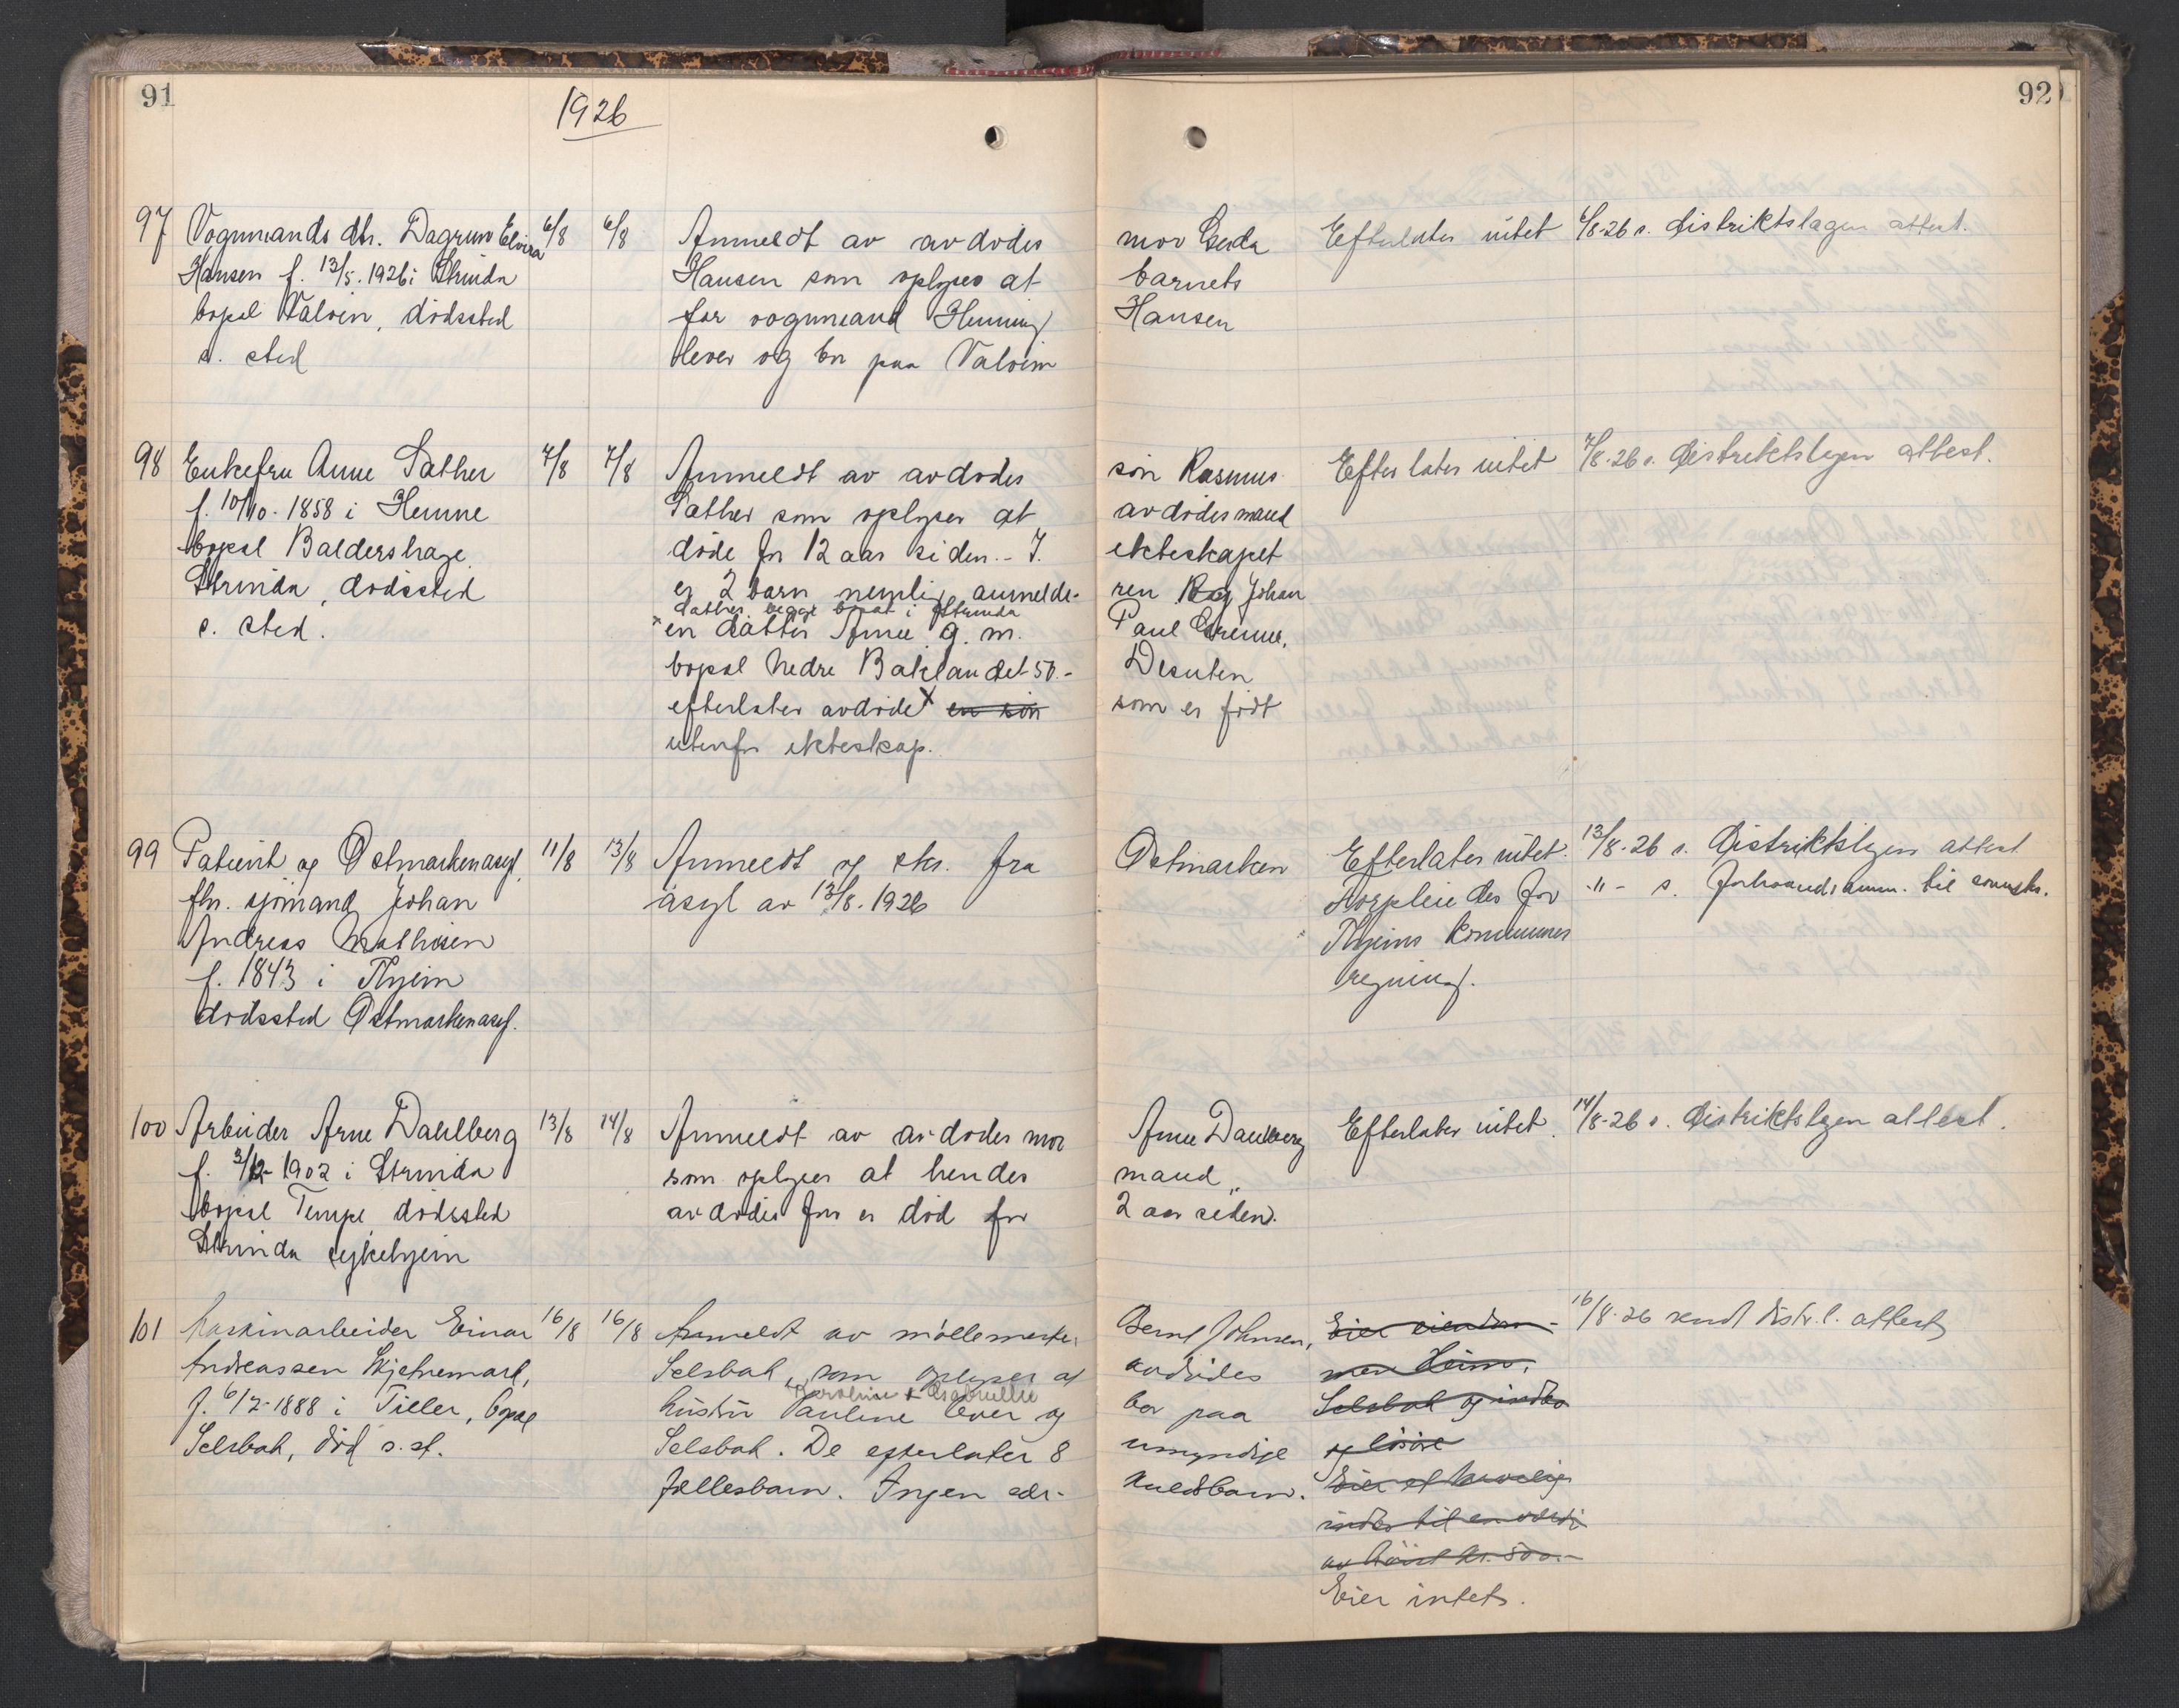 91
1926
92
97 Vognmands dtr. Dagrun Elvira 6/8 6/8 Anmeldt av avdødes mor Gerda Efterlater intet 6/8-26 s. distriktslægen attest.
Hansen f. 13/5.1926 i Strinda Hansen som oplyser at barnets
bopæl Valøien, dødssted far vognmand Henning Hansen
s. sted lever og bor paa Valøien
98 Enkefru Anne Sæther 7/8 7/8 Anmeldt av avdødes søn Rasmus Efterlater intet 7/8-26 s. distriktslægen attest.
f. 10/10-1858 i Hemne Sæther som oplyser at avdødes mand
bopæl Baldershage døde for 12 aar siden. - I. ekteskapet
Strinda, dødssted er 2 barn nemlig anmelde- ren Rag Johan
Sæther begge bopat i Strinda
s. sted. en datter Anne g. m. Paul Grenne,
bopæl Nedre Baklandet 50.- Desuten
efterlater avdøde x en søn som er født
utenfor ekteskap.
99 Patient og Østmarken asyl. 11/8 13/8 Anmeldt og skr. fra Østmarken Efterlater intet. 13/8-26 s. Distriktslægen attest
fhv. sjømand Johan asyl av 13/8.1926 Forpleiedes for -"- s. forhaandsanm. til
Andreas Mathisen Thjems kommunes
f. 1843 i Thjem regning.
dødssted Østmarken asyl.
100 Arbeider Arne Dahlberg 13/8 14/8 Anmeldt av avdødes mor Anne Dahlberg Efterlater intet. 14/8-26 s. distriktslægen attest.
f. 3/12-1902 i Strinda som oplyser at hendes mand,,
bopæl Tempe dødssted avdødes far er død for 2 aar siden.
Strinda sykehjem
101 Maskinarbeider Einar 16/8 16/8 Anmeldt av møllemester Bernt Johnsen, Eier eiendom- 16/8-26 sendt distr.l. attest
Andreassen Skjetnemark, Selsbak, som oplyser at avdødes men Heim,
Karoline + Gabrielle
f. 6/2-1888 i Tiller, bopæl hustru Pauline lever og bor paa Selsbak og indbo
Selsbak, død s. st. Selsbak. De efterlater 8 umyndige og løsøre
fællesbarn. Ingen sær- kuldbarn. Eier et
indbo til en værdi
av høist kr. 500.-
Eier intet.